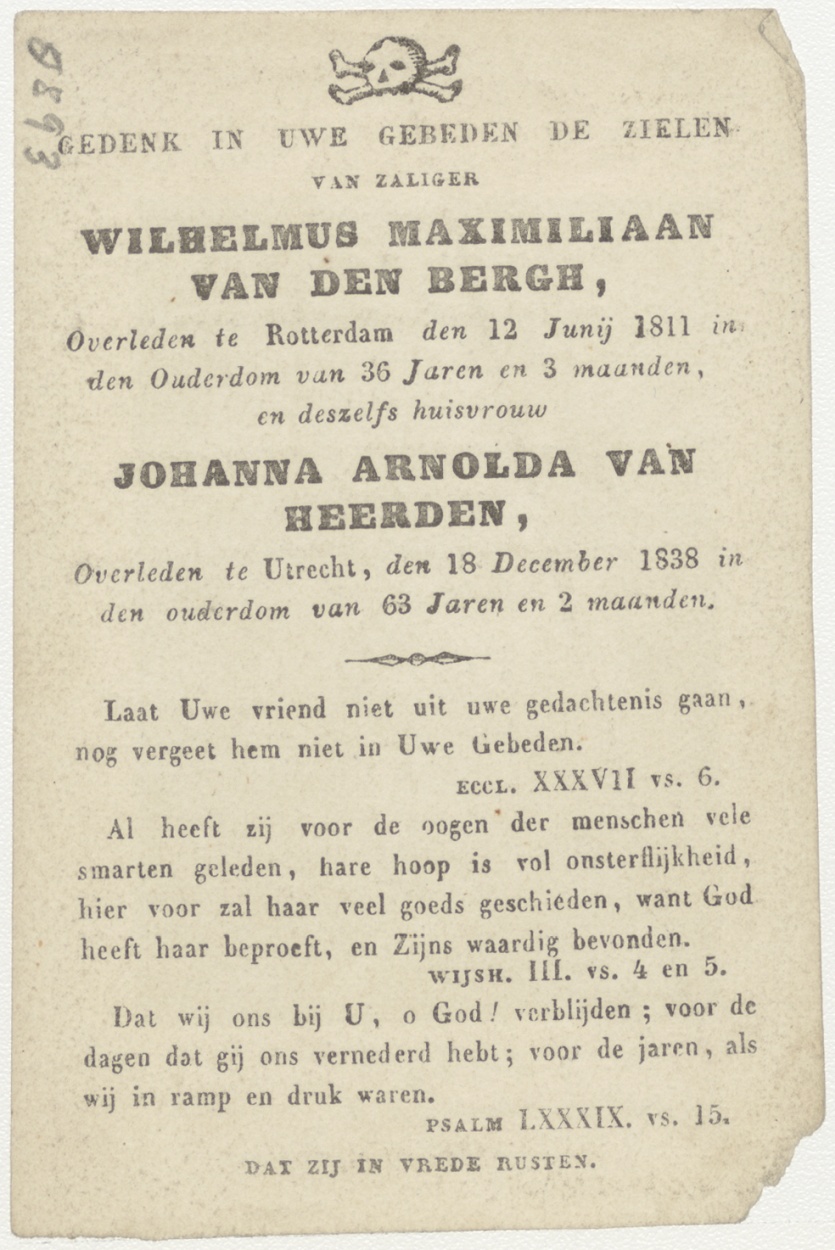 9893
GEDENK IN UWE GEBEDEN DE ZIELEN
VAN ZALIGER
WILHELMUS MAXIMILIAAN
VAN DEN BERGH,
Overleden te Rotterdam den 12 Junij 1811 in
den Ouderdom van 36 Jaren en 3 maanden,
en deszelfs huisvrouw
JOHANNA ARNOLDA VAN
HEERDEN,
Overleden te Utrecht, den 18 December 1838 in
den ouderdom van 63 Jaren en 2 maanden.
Laat Uwe vriend niet uit uwe gedachtenis gaan,
nog vergeet hem niet in Uwe Gebeden.
ECCL. XXXVII vs. 6.
Al heeft zij voor de oogen der menschen vele
smarten geleden, hare hoop is vol onsterflijkheid,
hier voor zal haar veel goeds geschieden, want God
heeft haar beproeft, en Zijns waardig bevonden.
WIJSH. III. vs. 4 en 5.
Dat wij ons bij U, o God! verblijden; voor de
dagen dat gij ons vernederd hebt; voor de jaren, als
wij in ramp en druk waren.
PSALM LXXXIX. vs. 15.
DAT ZIJ IN VREDE RUSTEN.